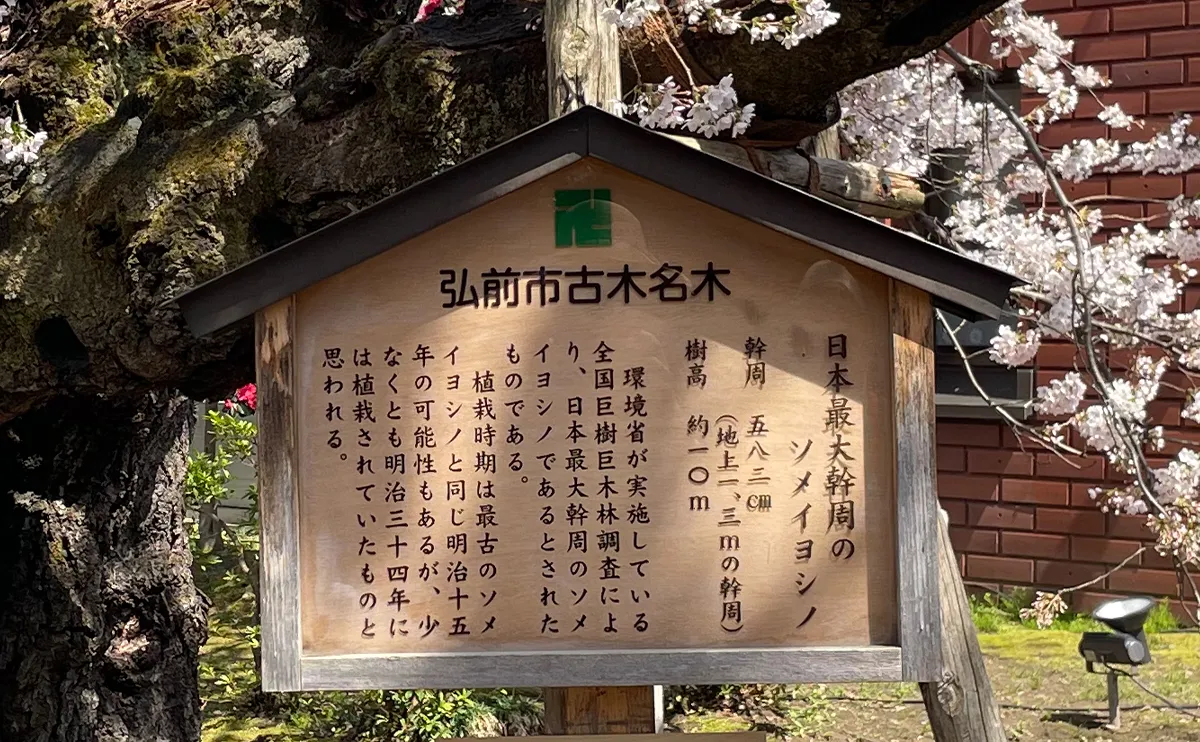 弘前市古木名木
日本最大幹周の
ソメイヨシノ
幹周 五八三㎝
(地上一、三mの幹周)
樹高 約一〇m
環境省が実施している
全国巨樹巨木林調査によ
り、日本最大幹周のソメ
イヨシノであるとされた
ものである。
植栽時期は最古のソメ
イヨシノと同じ明治十五
年の可能性もあるが、少
なくとも明治三十四年に
は植栽されていたものと
思われる。